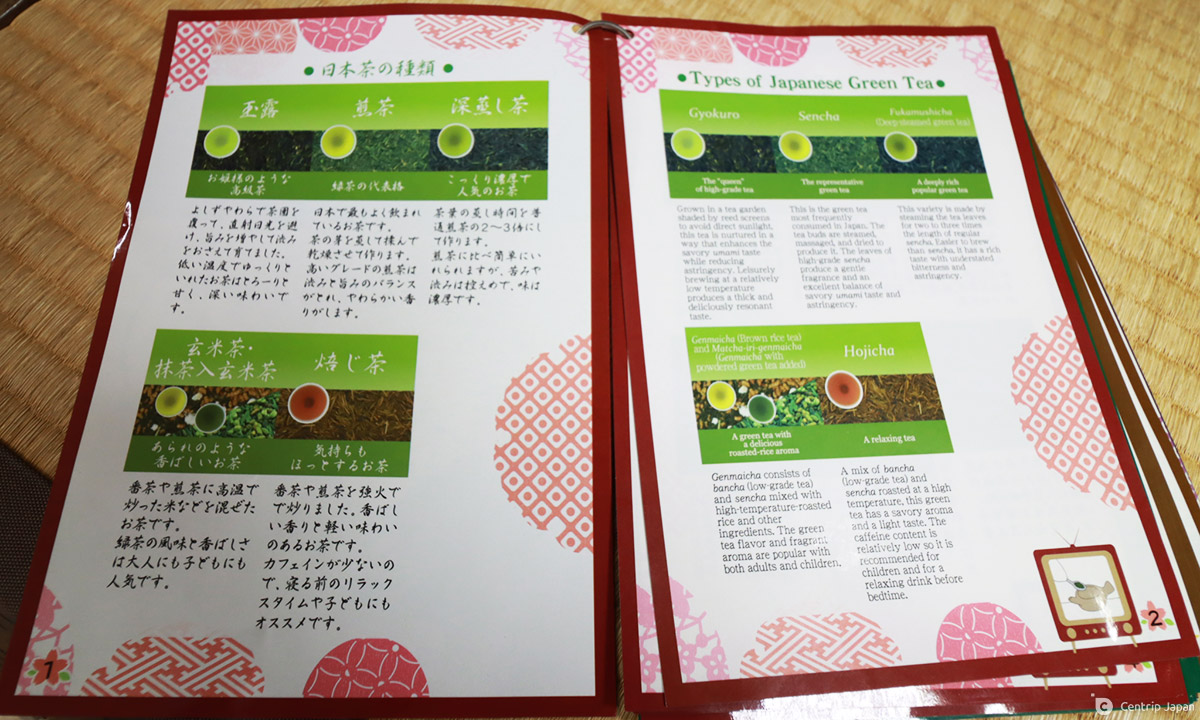 ●日本茶の種類●
玉露
煎茶
深蒸し茶
お姫様のような
高級茶
緑茶の代表格
こっくり濃厚で
人気のお茶
よしずやわらで茶園を
覆って、直射日光を避
け、旨みを増やして渋み
をおさえて育てました。
低い温度でゆっくりと
いれたお茶はとろーりと
甘く、深い味わいで
す。
日本で最もよく飲まれ
ているお茶です。
茶の芽を蒸して揉んで
乾燥させて作ります。
高いグレードの煎茶は
渋みと旨みのバランス
がとれ、やわらかい香
りがします。
茶葉の蒸し時間を普
通煎茶の2〜3倍にし
て作ります。
煎茶に比べ簡単にい
れられますが、苦みや
渋みは控えめで、味は
濃厚です。
玄米茶・
抹茶入玄米茶
焙じ茶
あられのような
香ばしいお茶
気持ちも
ほっとするお茶
番茶や煎茶に高温で
炒った米などを混ぜた
お茶です。
緑茶の風味と香ばしさ
は大人にも子どもにも
人気です。
番茶や煎茶を強火で
で炒りました。香ばし
い香りと軽い味わい
のあるお茶です。
カフェインが少ないの
で、寝る前のリラック
スタイムや子どもにも
オススメです。
1
●Types of Japanese Green Tea●
Gyokuro
Sencha
Fukamushicha
(Deep-steamed green tea)
The "queen"
of high-grade tea
The representative
green tea
A deeply rich
popular green tea
Grown in a tea garden
shaded by reed screens
to avoid direct sunlight,
this tea is nurtured in a
way that enhances the
savory umami taste
while reducing
astringency. Leisurely
brewing at a relatively
low temperature
produces a thick and
deliciously resonant
taste.
This is the green tea
most frequently
consumed in Japan. The
tea buds are steamed,
massaged, and dried to
produce it. The leaves of
high-grade sencha
produce a gentle
fragrance and an
excellent balance of
savory umami taste and
astringency.
This variety is made by
steaming the tea leaves
for two to three times
the length of regular
sencha. Easier to brew
than sencha, it has a rich
taste with understated
bitterness and
astringency.
Genmaicha (Brown rice tea)
and Matcha-iri-genmaicha
(Genmaicha with
powdered green tea added)
Hojicha
A green tea with
a delicious
roasted-rice aroma
A relaxing tea
Genmaicha consists of
bancha (low-grade tea)
and sencha mixed with
high-temperature-roasted
rice and other
ingredients. The green
tea flavor and fragrant
aroma are popular with
both adults and children.
A mix of bancha
(low-grade tea) and
sencha roasted at a high
temperature, this green
tea has a savory aroma
and a light taste. The
caffeine content is
relatively low so it is
recommended for
children and for a
relaxing drink before
bedtime.
2
C Centrip Japan